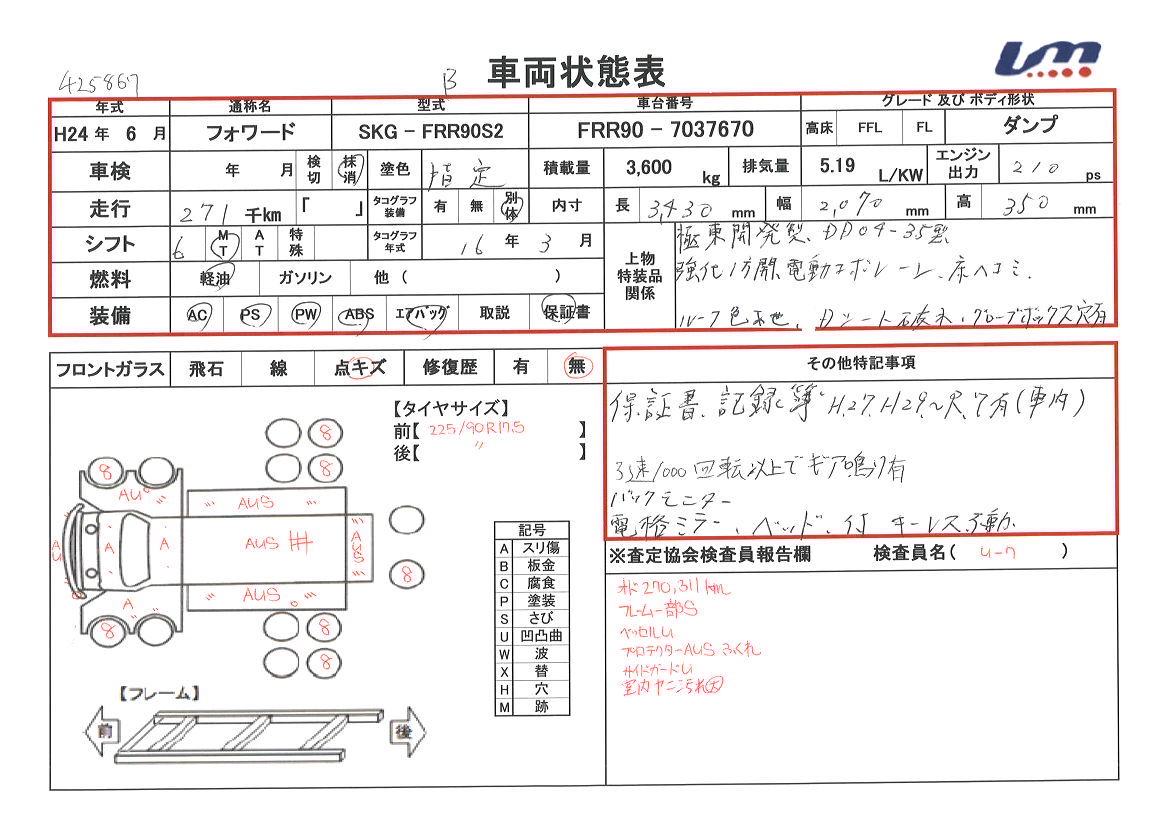 425867
B 車両状態表
年式 通称名 型式 車台番号 グレード 及び ボディ形状
H24 年 6 月 フォワード SKG - FRR90S2 FRR90 - 7037670 高床 FFL FL ダンプ
車検 年 月 検切 抹消 塗色 指定 積載量 3,600 kg 排気量 5.19 L/KW エンジン出力 210 ps
走行 271 千km 「 」 タコグラフ装備 有 無 別体 内寸 長 3,430 mm 幅 2,070 mm 高 350 mm
シフト 6 MT AT 特殊 タコグラフ年式 16 年 3 月
燃料 軽油 ガソリン 他 ( )
装備 AC PS PW ABS エアバッグ 取説 保証書
上物特装品関係
極東開発製、DD04-35型
強化1方開 電動コボレーン、床ヘコミ.
ルーフ色あせ、Dシート破れ・グローブボックス穴有
フロントガラス 飛石 線 点キズ 修復歴 有 無
その他特記事項
保証書、記録簿 H.27.H29.~R.7有(車内)
3速1000回転以上でギア鳴り有
バックモニター
電格ミラー、ベッド付 キーレス
【タイヤサイズ】
前【 225/90R17.5 】
後【 〃 】
8 8
8 8
8 8
8 8
AU AUS AUS
A A AUS
A AUS
AU
記号
A スリ傷
B 板金
C 腐食
P 塗装
S さび
U 凹凸曲
W 波
X 替
H 穴
M 跡
【フレーム】
前 後
※査定協会検査員報告欄 検査員名( )
270,311km
フレーム一部S
ベッセルU
プロテクターAUS ふくれ
サイドガードU
室内ヤニ汚れ大